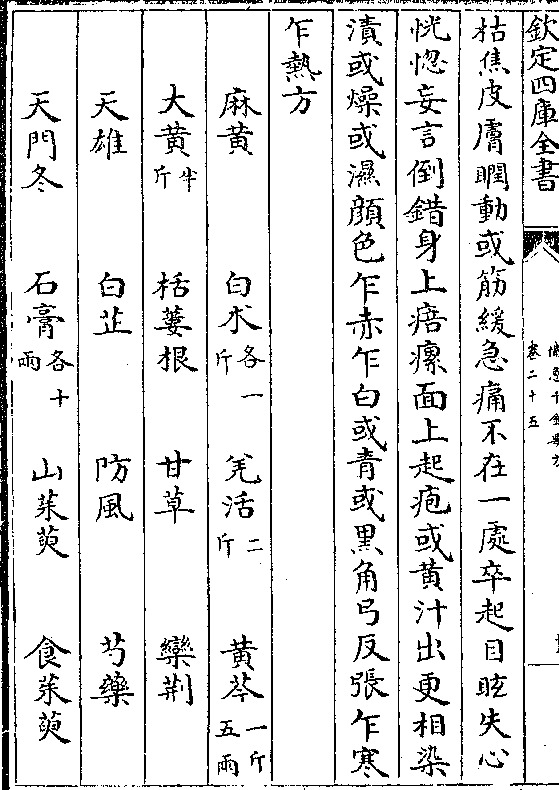 欽定四庫全書
備急千金要方
卷二十五
枯焦皮膚瞤動或筋緩急痛不在一處卒起目眩失心
恍惚妄言倒錯身上㾦瘰面上起疱或黄汁出更相染
漬或燥或濕顔色乍赤乍白或青或黒角弓反張乍寒
乍熱方
麻黄 白朮各一斤 羌活二斤 黄芩一斤五兩
大黄半斤 栝蔞根 甘草 欒荆
天雄 白芷 防風 芍藥
天門冬 石膏各十兩 山茱萸 食茱萸